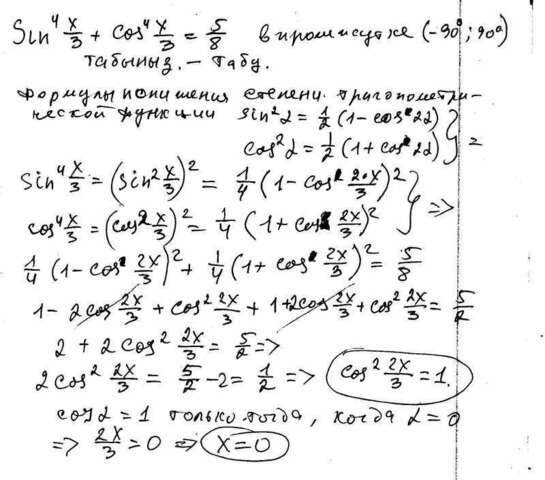 Sin⁴ x/3 + cos⁴ x/3 = 5/8 в промисутке (-90°; 90°)
табыныз. – табу.
Формулы понишения степени. тригонометри-
ческой функции sin²α = 1/2 (1 - cos 2α)
cos²α = 1/2 (1 + cos 2α) } =
Sin⁴ x/3 = (sin² x/3)² = 1/4 (1 - cos 2·x/3)²
cos⁴ x/3 = (cos² x/3)² = 1/4 (1 + cos 2x/3)² } =>
1/4 (1 - cos 2x/3)² + 1/4 (1 + cos 2x/3)² = 5/8
1 - 2cos 2x/3 + cos² 2x/3 + 1 + 2cos 2x/3 + cos² 2x/3 = 5/2
2 + 2 cos² 2x/3 = 5/2 =>
2 cos² 2x/3 = 5/2 - 2 = 1/2 => cos² 2x/3 = 1.
cos α = 1 только тогда, когда α = 0
=> 2x/3 = 0 => x = 0